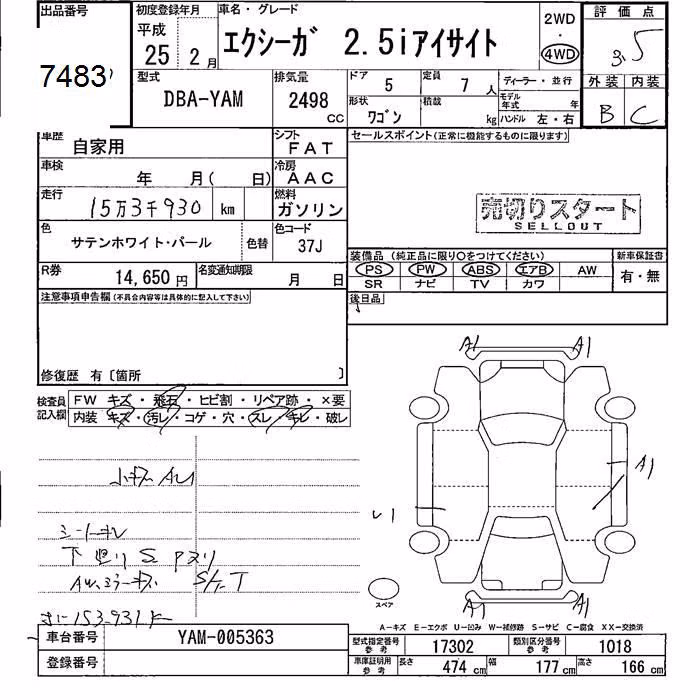 出品番号
7483
初度登録年月
平成
25 2月
車名・グレード
エクシーガ 2.5iアイサイト
2WD
・
4WD
評価点
3.5
外装 内装
B C
型式
DBA-YAM
排気量
2498
CC
ドア 5
定員 7人
形状 ワゴン
積載 kg
ディーラー・並行
モデル年式 年
ハンドル 左・右
車歴
自家用
シフト
FAT
車検
年 月( 日)
冷房
AAC
走行
15万3千930 km
燃料
ガソリン
色
サテンホワイト・パール
色替
色コード
37J
R券
14,650円
名変通知期限
月 日
セールスポイント(正常に機能するものに限ります)
売切りスタート
SELLOUT
装備品 (純正品に限り○をつけてください)
新車保証書
PS PW ABS エアB AW
有・無
SR ナビ TV カワ
後日品
注意事項申告欄(不具合内容等は具体的に記入して下さい)
修復歴 有〔箇所 〕
検査員記入欄
FW キズ・飛石・ヒビ割・リペア跡・×要
内装 キズ・汚レ・コゲ・穴・スレ・キレ・破レ
小キズ AU
シートキレ
下廻り S Pスリ
AW,ミラーキズ S/T
153,931K
A1 A1
A1
U1
A1 A1
スペア
A-キズ E-エクボ U-凹み W-補修跡 S-サビ C-腐食 XX-交換済
車台番号 YAM-005363
登録番号
型式指定番号 参考 17302
類別区分番号 参考 1018
車庫証明用 参考 長さ 474cm 幅 177cm 高さ 166cm